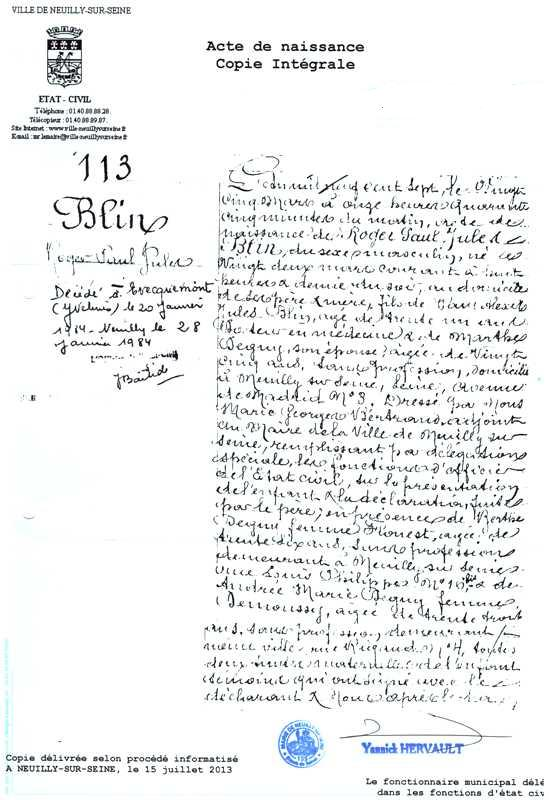 VILLE DE NEUILLY-SUR-SEINE
Acte de naissance
Copie Intégrale
ETAT - CIVIL
Téléphone : 01.40.88.88.28.
Télécopieur : 01.40.88.89.87.
Site Internet : www.ville-neuillysurseine.fr
E-mail : mr.lemaire@ville-neuillysurseine.fr
113
Blin
Roger Paul Jules
Décédé à Evecquemont
(Yvelines) le 20 janvier
1984 - Neuilly le 28
janvier 1984
L'an mil neuf cent sept, le Vingt
cinq Mars à onze heures quarante
cinq minutes du matin, acte de
naissance de Roger Paul Jules
Blin, du sexe masculin, né le
Vingt deux mars courant à huit
heures & demie du soir, au domicile
de ses père & mère, fils de
Jules Blin, âgé de trente un ans
Docteur en médecine & de Marthe
Seguy, son épouse, âgée de Vingt
cinq ans, sans profession, domiciliés
à Neuilly sur Seine, Seine, Avenue
de Madrid Nº 3. Dressé par Nous
Marie Georges Bertrand, adjoint
au Maire de la Ville de Neuilly sur
Seine, remplissant par délégation
spéciale, les fonctions d'officier
de l'Etat civil, sur la présentation
de l'enfant & la déclaration faites
par le père; en présence de Berthe
Seguy femme, âgée de
trente six ans, sans profession
demeurant à Neuilly sur Seine
rue Louis Philippe Nº & de
Andrée Marie Seguy femme
Demoussy, âgée de trente trois
ans, sans profession, demeurant
même ville rue Nº 4, toutes
deux tantes maternelles de l'enfant
témoins qui ont signé avec le
déclarant & Nous après lecture
MAIRIE DE NEUILLY-SUR-SEINE
Yannick HERVAULT
Copie délivrée selon procédé informatisé
A NEUILLY-SUR-SEINE, le 15 juillet 2013
Le fonctionnaire municipal délé
dans les fonctions d'état civ